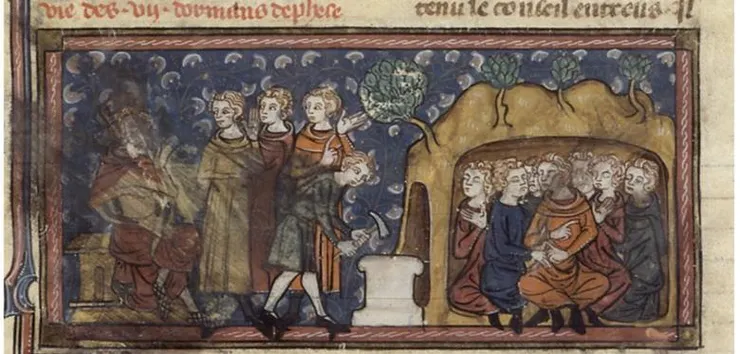 vie des · vij · dormans dephese
tenu le conseil entreus · Il